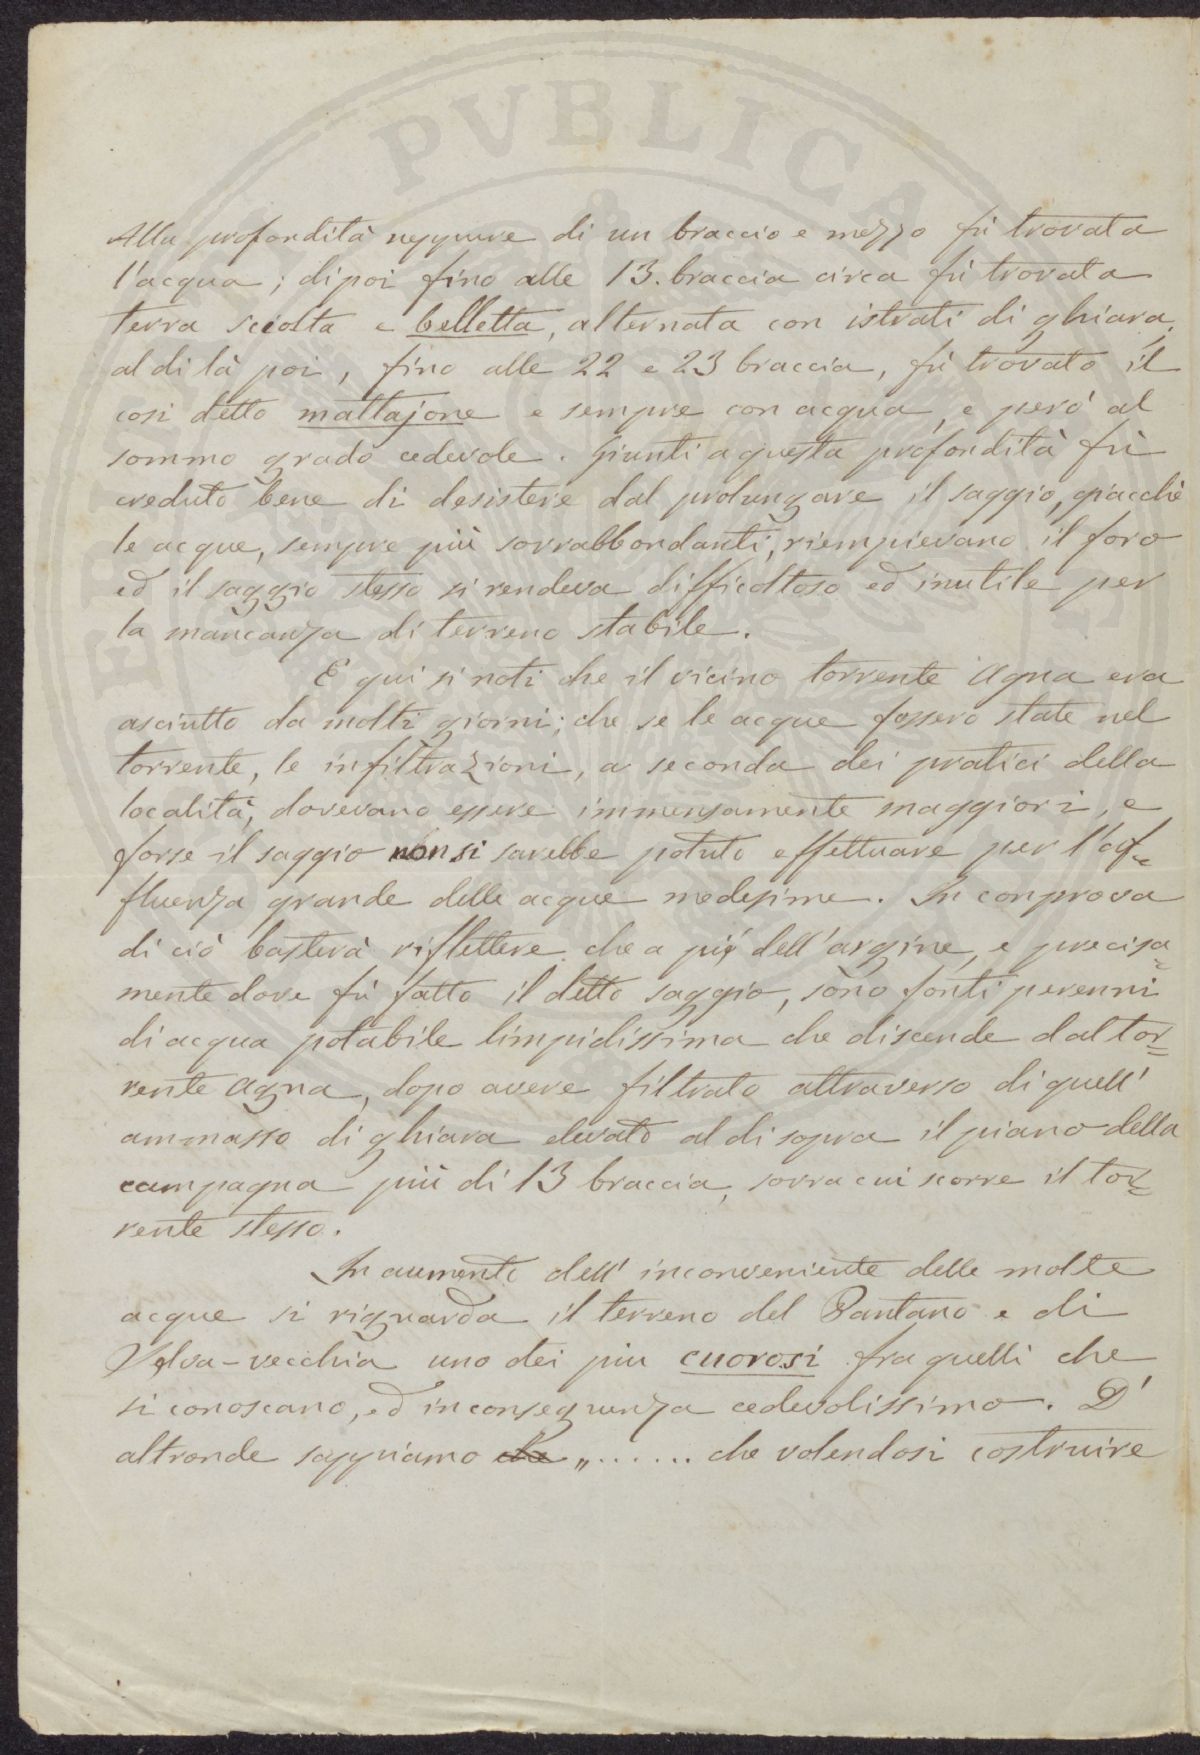 Alla profondità neppure di un braccio e mezzo fù trovata
l'acqua; dipoi fino alle 13. braccia circa fù trovata
terra sciolta e belletta, alternata con istrati di ghiara,
al di là poi, fino alle 22 e 23 braccia, fù trovato il
così detto mattajone e sempre con acqua, e però al
sommo grado cedevole. Giunti a questa profondità fù
creduto bene di desistere dal prolungare il saggio, giacchè
le acque, sempre più sovrabbondanti, riempievano il foro
ed il saggio stesso si rendeva difficoltoso ed inutile per
la mancanza di terreno stabile.
E qui si noti che il vicino torrente Agna era
asciutto da molti giorni; che se le acque fossero state nel
torrente, le infiltrazioni, a seconda dei pratici della
località, dovevano essere immensamente maggiori, e
forse il saggio non si sarebbe potuto effettuare per l'af=
fluenza grande delle acque medesime. In comprova
di ciò basterà riflettere che a piè dell'argine, e precisa=
mente dove fù fatto il detto saggio, sono fonti perenni
di acqua potabile limpidissima che discende dal tor=
rente Agna, dopo avere filtrato attraverso di quell'
ammasso di ghiara elevato al di sopra il piano della
campagna più di 13 braccia, sovra cui scorre il tor=
rente stesso.
In aumento dell'inconveniente delle molte
acque si riguarda il terreno del Pantano e di
Selva-vecchia uno dei più cuorosi fra quelli che
si conoscano, ed in conseguenza cedevolissimo. D'
altronde sappiamo che „...... che volendosi costruire
PVBLICA